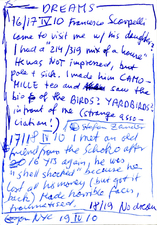 DREAMS
16/17 IV 10 Francesco Scarpelli
come to visit me w/ his daughter
I had a 214/319 mix of a house"
He was NOT impressed, but
pale & sick. I made him CAMO-
MILLE tea and saw the
bio of the BIRDS? YARDBIRDS?
in front of me (strange asso-
ciation!) Stefan Zauner
17/18 IV 10 I met an old
friend from the School ago
16 YRS again, he was
"shell shocked" because he
lost all his money (but got it
back). Made horrible faces,
traumatized. 18/19 No dream
NYC 19 IV 10